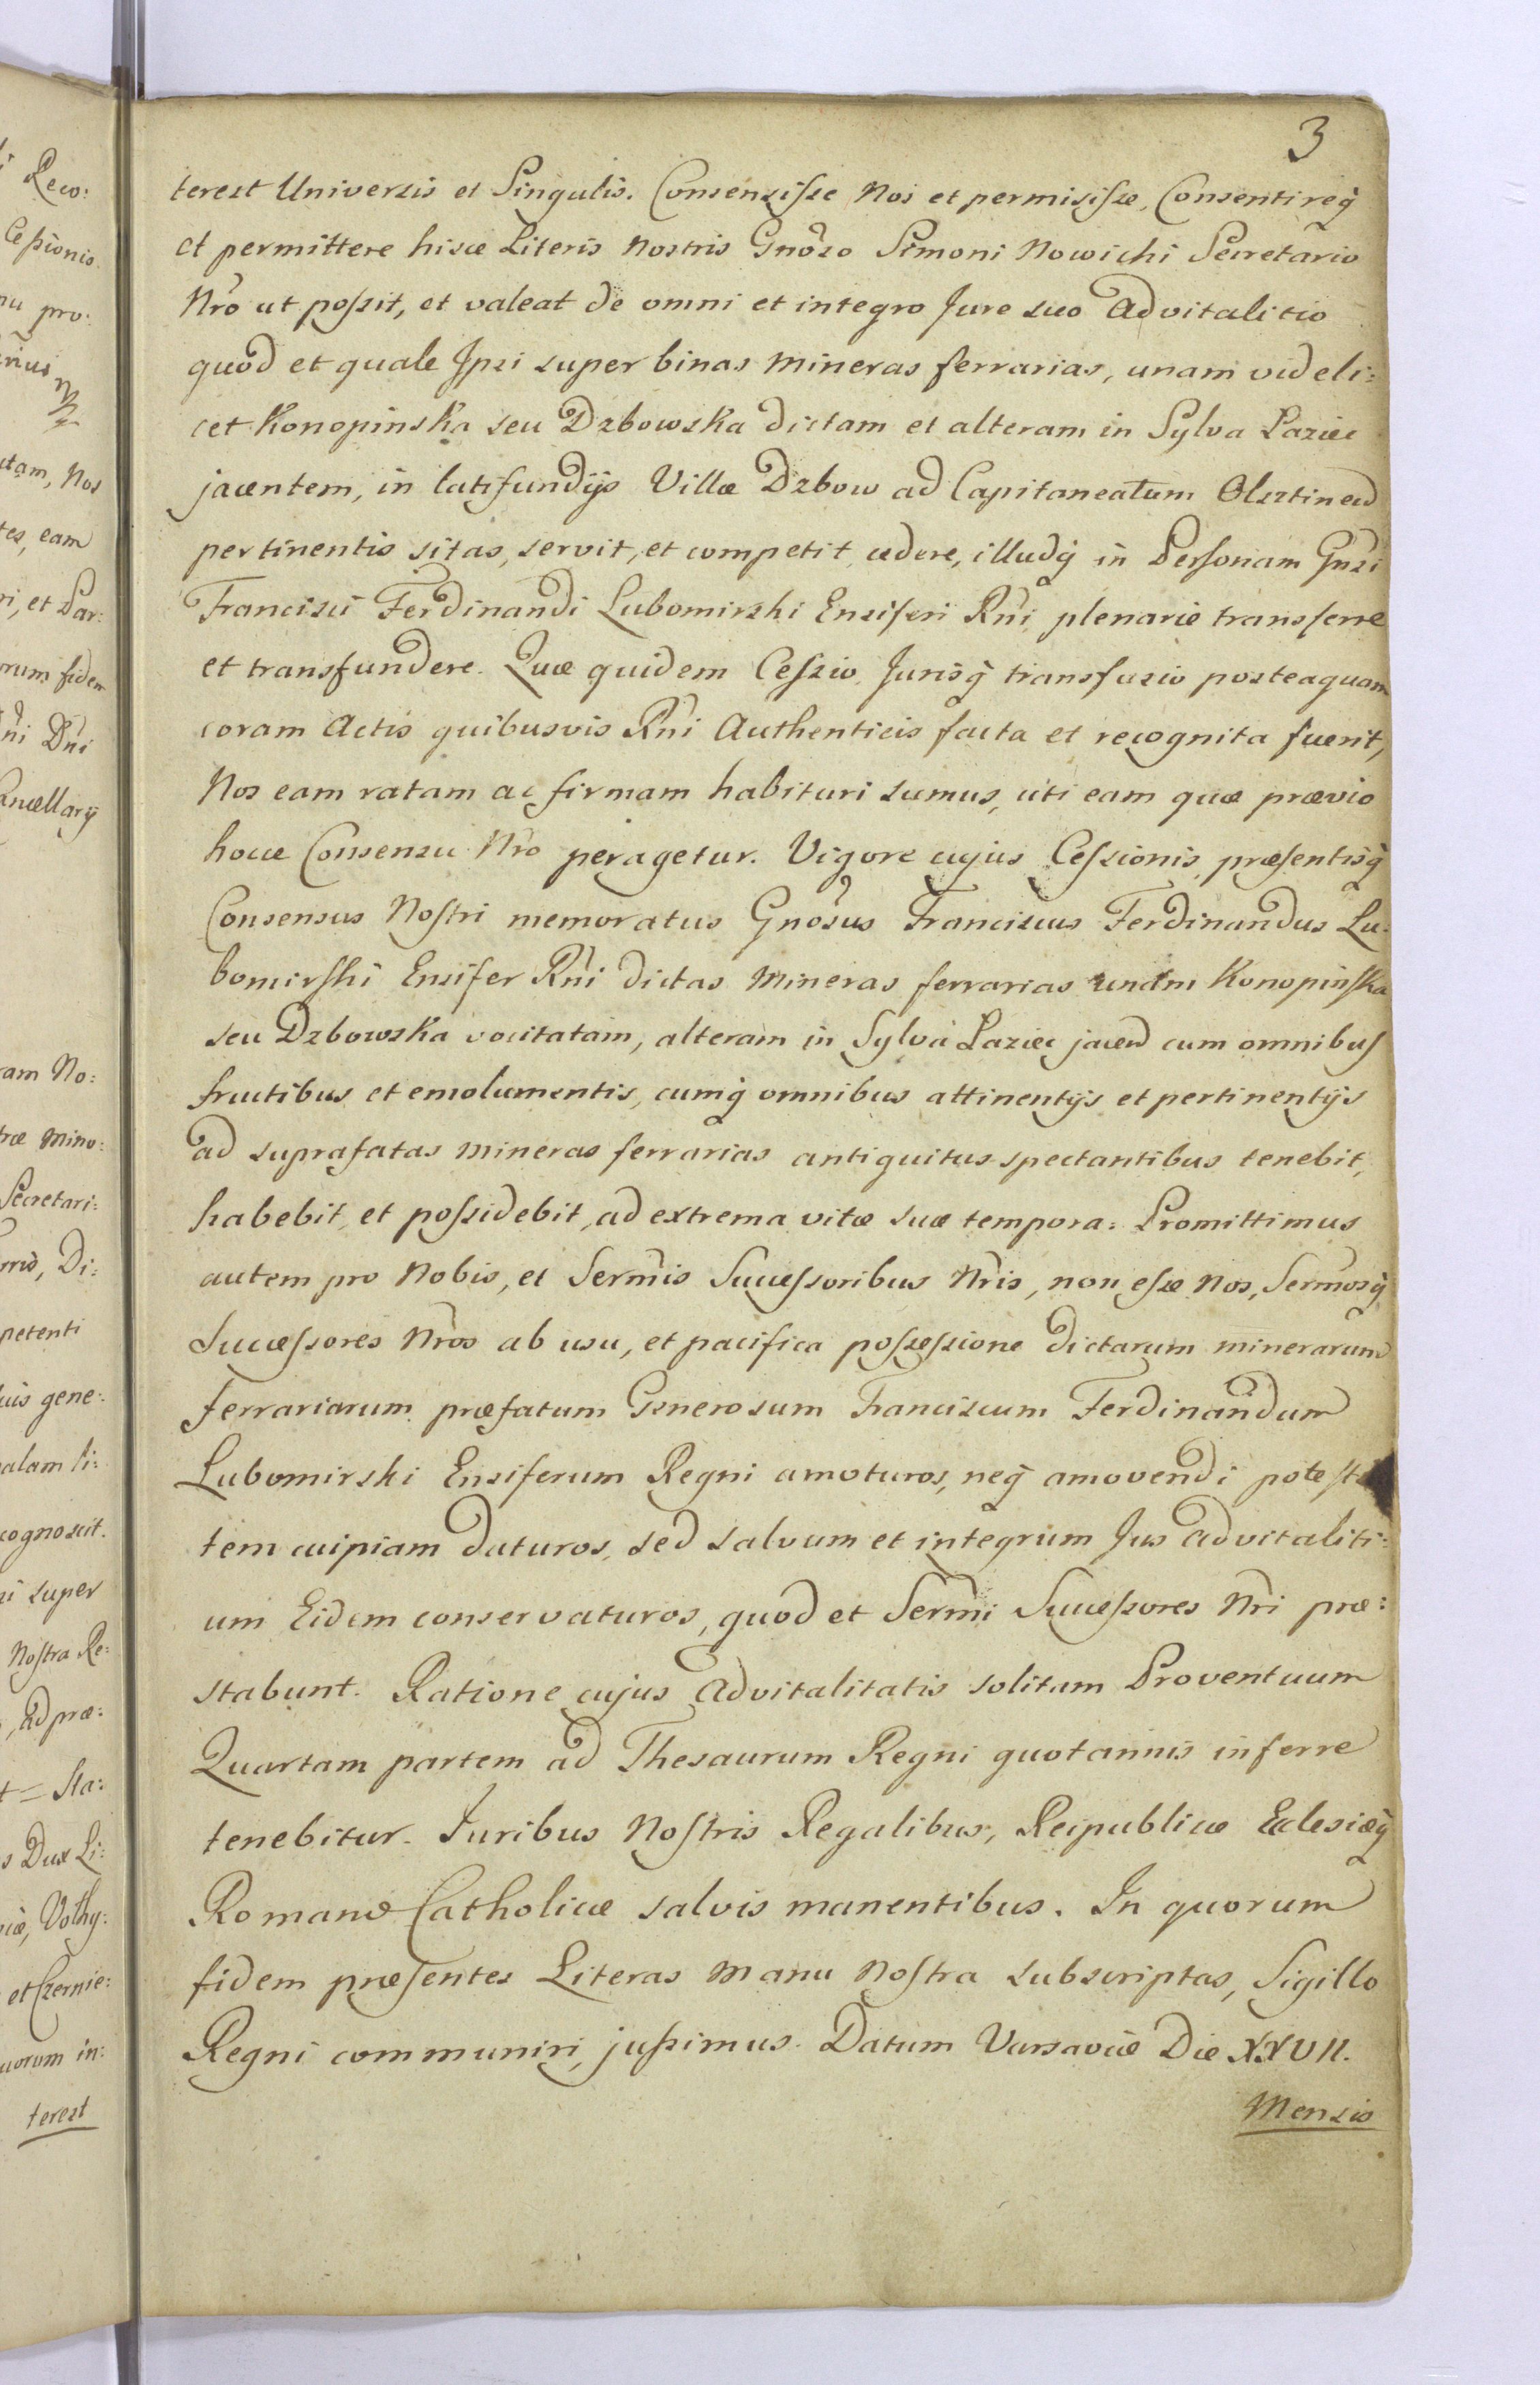 3
terest Universis et Singulis. Consensisse Nos et permisisse, Consentireq̃
et permittere hisce Literis Nostris Gnõso Simoni Nowicki Secretario
Nrõ ut possit, et valeat de omni et integro Jure suo Advitalitio
quod et quale Ipsi super binas Mineras ferrarias, unam videli:
cet Konopinska seu Dzbowska dictam et alteram in Sylva Laziec
jacentem, in latifundijs Villæ Dzbow ad Capitaneatum Olsztinen̄
pertinentis sitas, servit, et competit cedere, illudq̃ in Personam Gnsi
Francisci Ferdinandi Lubomirski Ensiferi Rñi plenarie transferre
et transfundere. Quæ quidem Cessio, Jurisq̃ transfusio posteaquam
coram Actis quibusvis Rñi Authenticis facta et recognita fuerit,
Nos eam ratam ac firmam habituri sumus, uti eam quæ prævio
hocce Consensu Nrõ peragetur. Vigore cujus Cessionis, præsentisq̃
Consensus Nostri memoratus Gnõsus Franciscus Ferdinandus Lu:
bomirski Ensifer Rñi dictas Mineras ferrarias unam Konopinska
seu Dzbowska vocitatam, alteram in Sylva Laziec jacen̄ cum omnibus
fructibus et emolumentis, cumq̃ omnibus attinentijs et pertinentijs
ad suprafatas Mineras ferrarias antiquitus spectantibus tenebit,
habebit, et possidebit, ad extrema vitæ suæ tempora: Promittimus
autem pro Nobis, et Serm̃is Successoribus Nrĩs, non esse Nos, Serm̃osq̃
Successores Nrõs ab usu, et pacifica possessione dictarum minerarum
ferrariarum præfatum Generosum Franciscum Ferdinandum
Lubomirski Ensiferum Regni amoturos, neq̃ amovendi potesta
tem cuipiam daturos, sed salvum et integrum Jus Advitaliti:
um Eidem conservaturos, quod et Serm̃i Successores Nrĩ præ:
stabunt. Ratione cujus Advitalitatis solitam Proventuum
Quartam partem ad Thesaurum Regni quotannis inferre
tenebitur. Juribus Nostris Regalibus, Reipublicæ Eclesiæq̃
Romanæ Catholicæ salvis manentibus. In quorum
fidem præsentes Literas Manu Nostra subscriptas, Sigillo
Regni communiri jussimus. Datum Varsaviæ Die XXVII.
Mensis